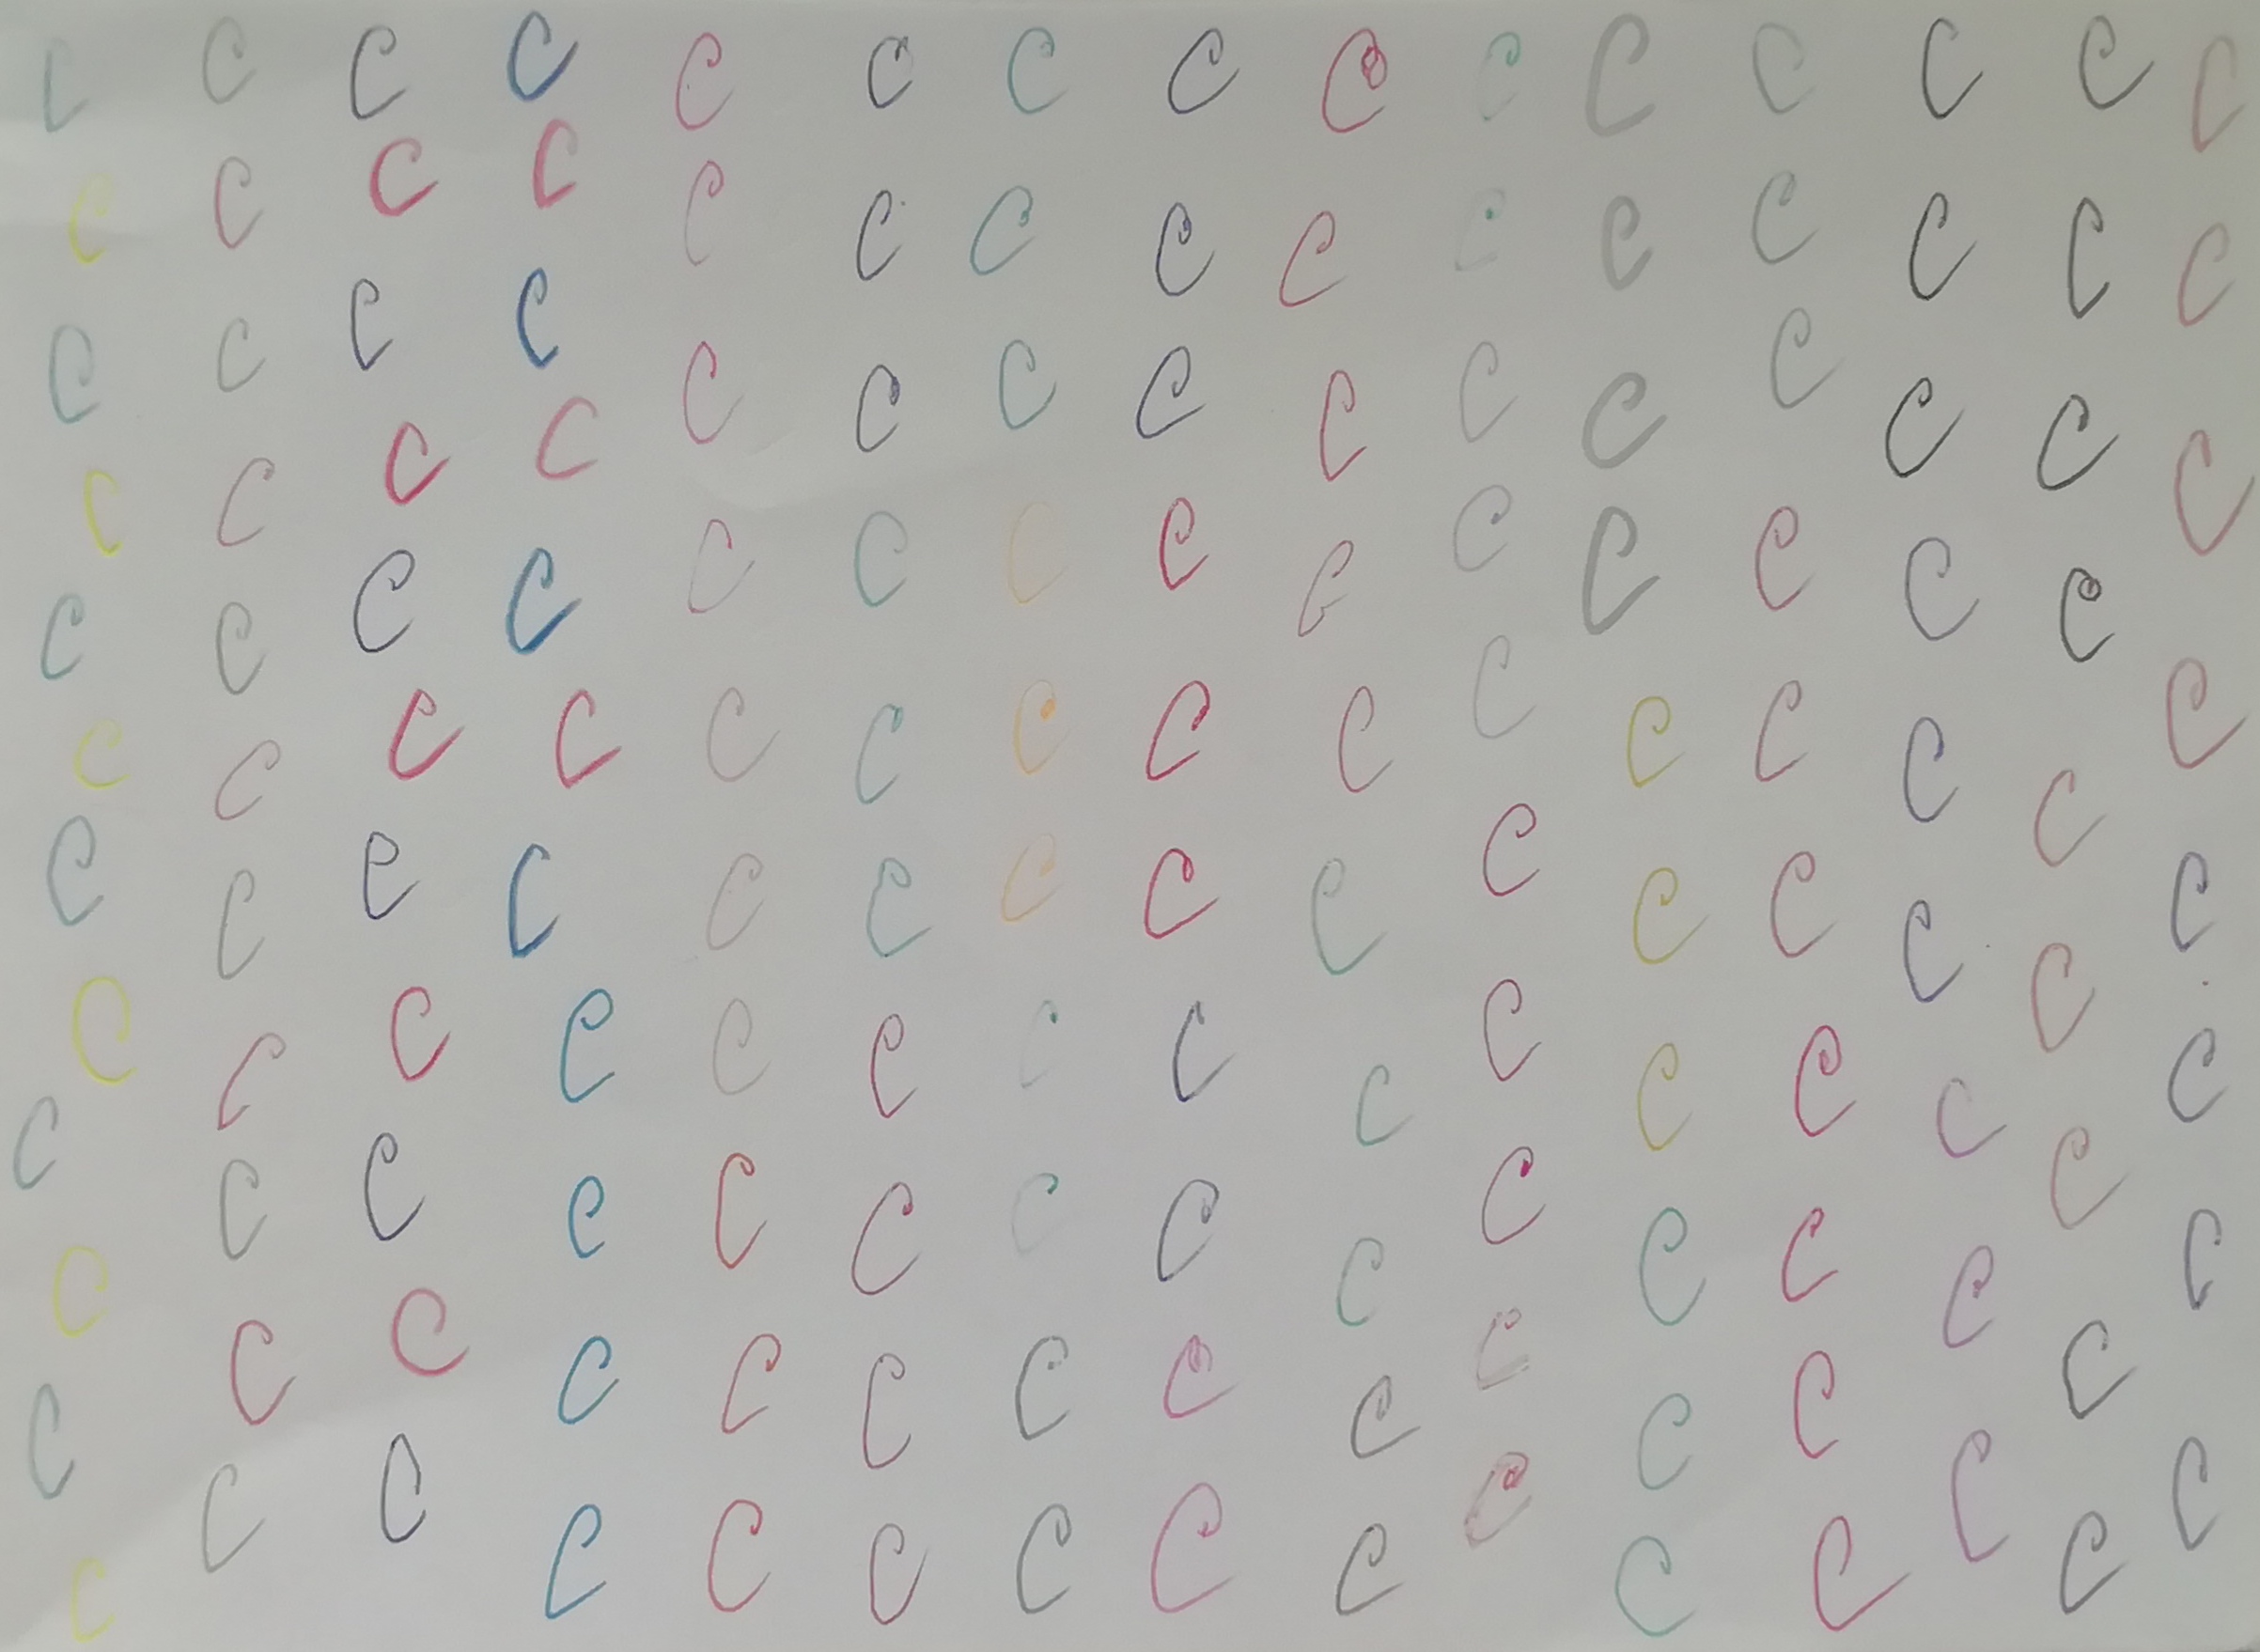 C C C C C C C C C C C C C C C
C C C C C C C C C C C C C C C
C C C C C C C C C C C C C C C
C C C C C C C C C C C C C C C
C C C C C C C C C C C C C C C
C C C C C C C C C C C C C C C
C C C C C C C C C C C C C C C
C C C C C C C C C C C C C C C
C C C C C C C C C C C C C C
C C C C C C C C C C C C
C C C C
C